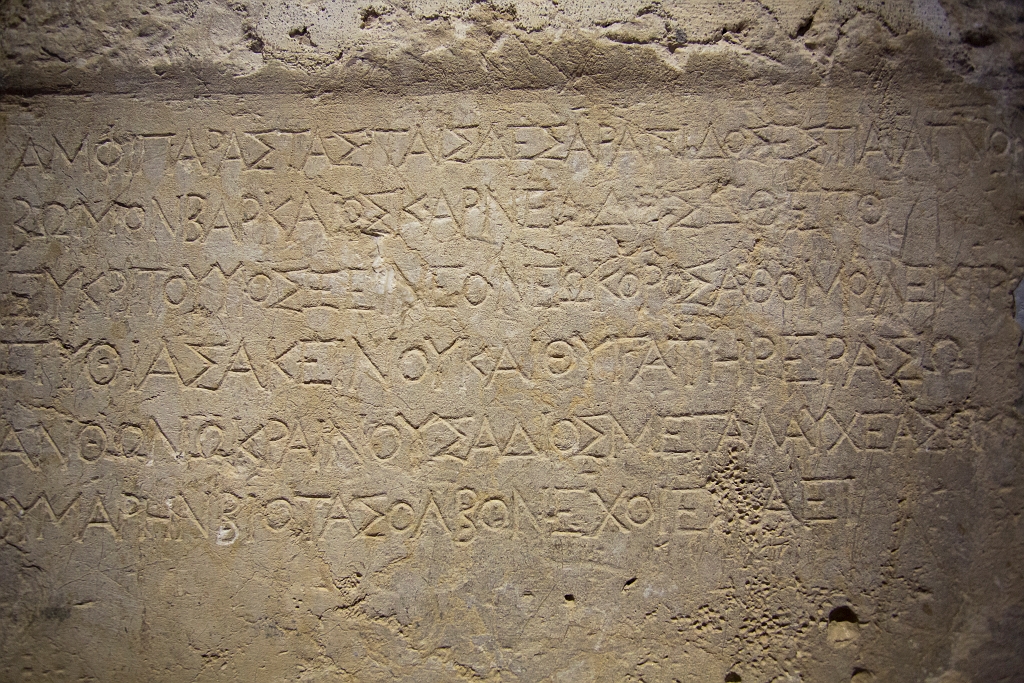 ΑΜΟΙΠΑΡΑΣΤΑΣΤΑΙΣΔΕΣΑΡΑΠΙΔΟΣΕΣΤΙΑΑΓΝΟ
ΒΩΜΟΝΒΑΡΚΑΙΟΣΚΑΡΝΕΑΔΟΣΕΘΕΤΟ
ΕΥΚΡΙΤΟΥΥΙΟΣΞΕΙΝΕΟΝΕΩΚΟΡΟΣΑΘΟΜΟΛΕΚΤΡ
ΠΥΘΙΑΣΑΚΕΙΝΟΥΚΑΙΘΥΓΑΤΗΡΕΡΑΣΩ
ΑΝΘΩΝΩΚΡΑΙΝΟΥΣΑΔΙΟΣΜΕΓΑΛΑΥΧΕΑΣ
ΘΥΜΑΡΗΝΒΙΟΤΑΣΟΛΒΟΝΕΧΟΙΕΝΑΕΙ